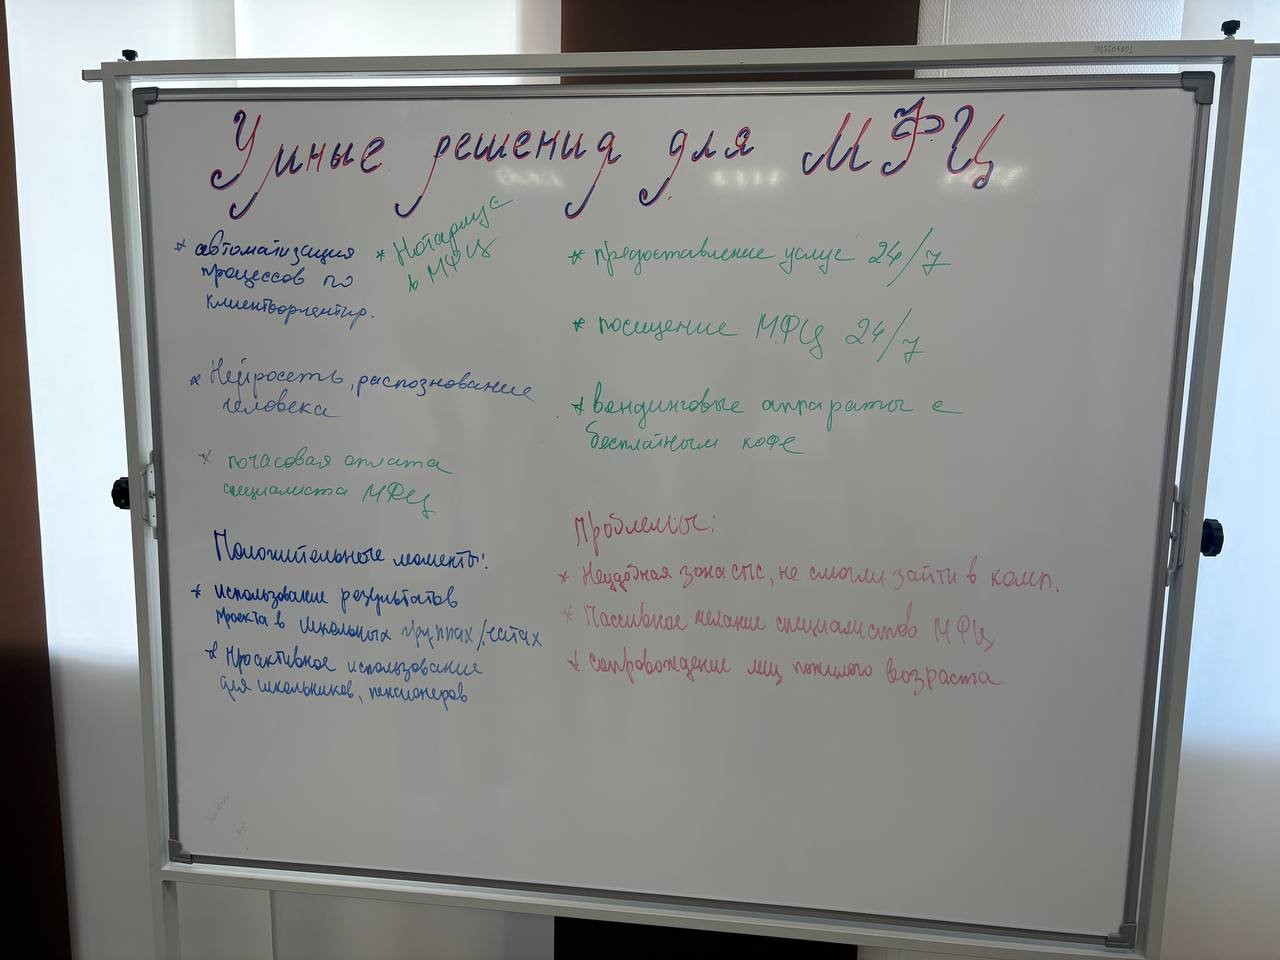 Умные решения для МФЦ
* автоматизация
процессов по
клиентоориентир.
* Нотариус
в МФЦ
* Нейросеть, распознование
человека
* почасовая оплата
специалиста МФЦ
* предоставление услуг 24/7
* посещение МФЦ 24/7
* вендинговые аппараты с
бесплатным кофе
Положительные моменты:
* использование результатов
проекта в школьных группах/чатах
* Проактивное использование
для школьников, пенсионеров
Проблемы:
* Неудобная зона, не смогли зайти в комп.
* Пассивное желание специалистов МФЦ
* сопровождение лиц пожилого возраста